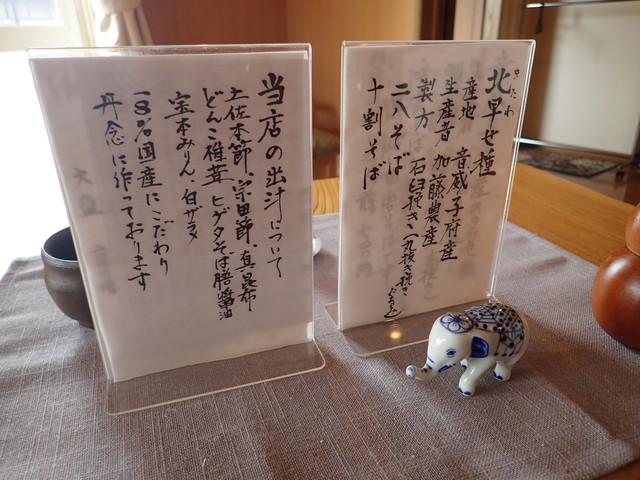 当店の出汁について
土佐本節、宗田節、真昆布
どんこ椎茸、ヒゲタそば膳醤油
宝本みりん、白ザラメ
100%国産にこだわり
丹念に作っております
きたわ
北早せ種
産地 音威子府産
生産者 加藤農産
製方 石臼挽き(丸抜き挽き
ぐるみ)
二八そば
十割そば